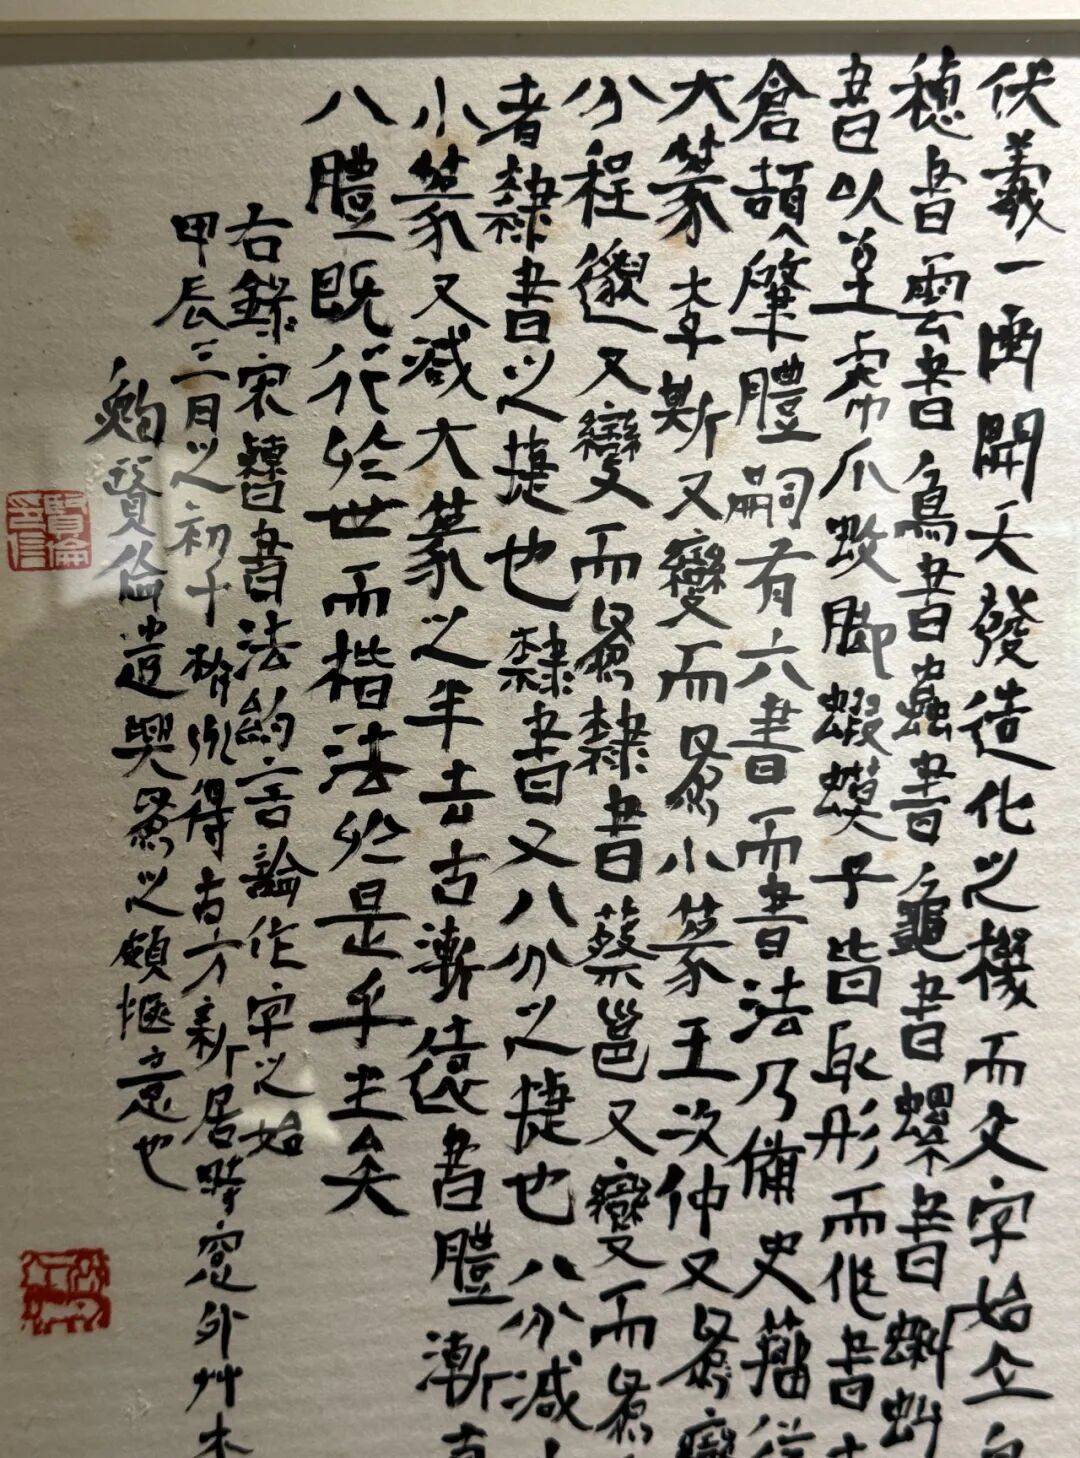 伏羲一画開天發造化之機而文字始立自
穗書雲書鳥書蟲書龜書螺書蝌蚪
書以至虎爪蚊脚蝦蟆子皆取形而作書
倉頡肇體嗣有六書而書法乃備史籀從
大篆李斯又變而爲小篆王次仲又爲變
分程邈又變而爲隸書蔡邕又變而爲
者隸書之捷也隸書又八分之捷也八分減
小篆又減大篆之半去古漸遠書體漸
八體既行於世而楷法於是乎生矣
右錄宋書法約言論作字之始
甲辰三月之初于得古方新居時窗外艸木
賢倫遣興爲之頗愜意也
賢倫